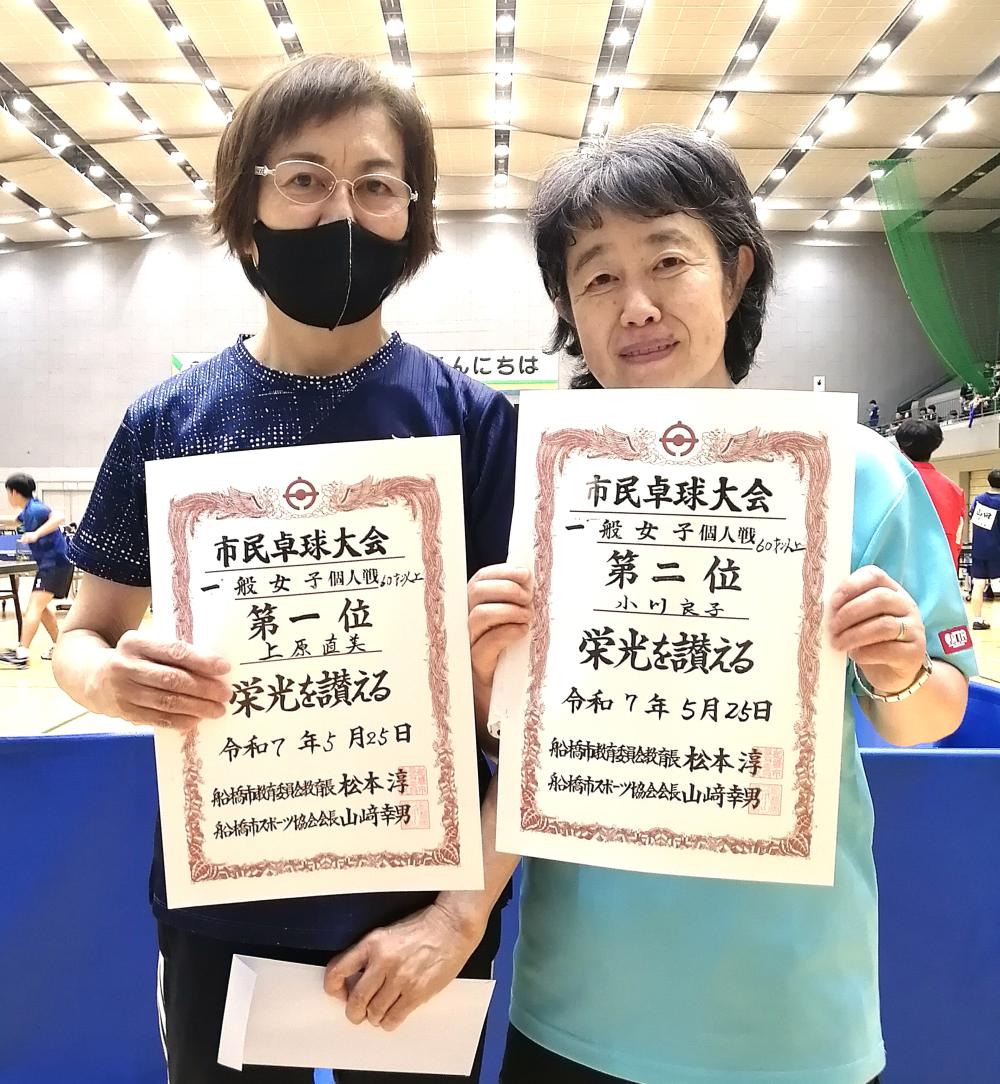 んにちは
市民卓球大会
一般女子個人戦60才以上
第一位
上原直美
栄光を讃える
令和7年5月25日
船橋市教育委員会教育長 松本淳
船橋市スポーツ協会会長 山﨑幸男
市民卓球大会
一般女子個人戦60才以上
第二位
小川良子
栄光を讃える
令和7年5月25日
船橋市教育委員会教育長 松本淳
船橋市スポーツ協会会長 山﨑幸男